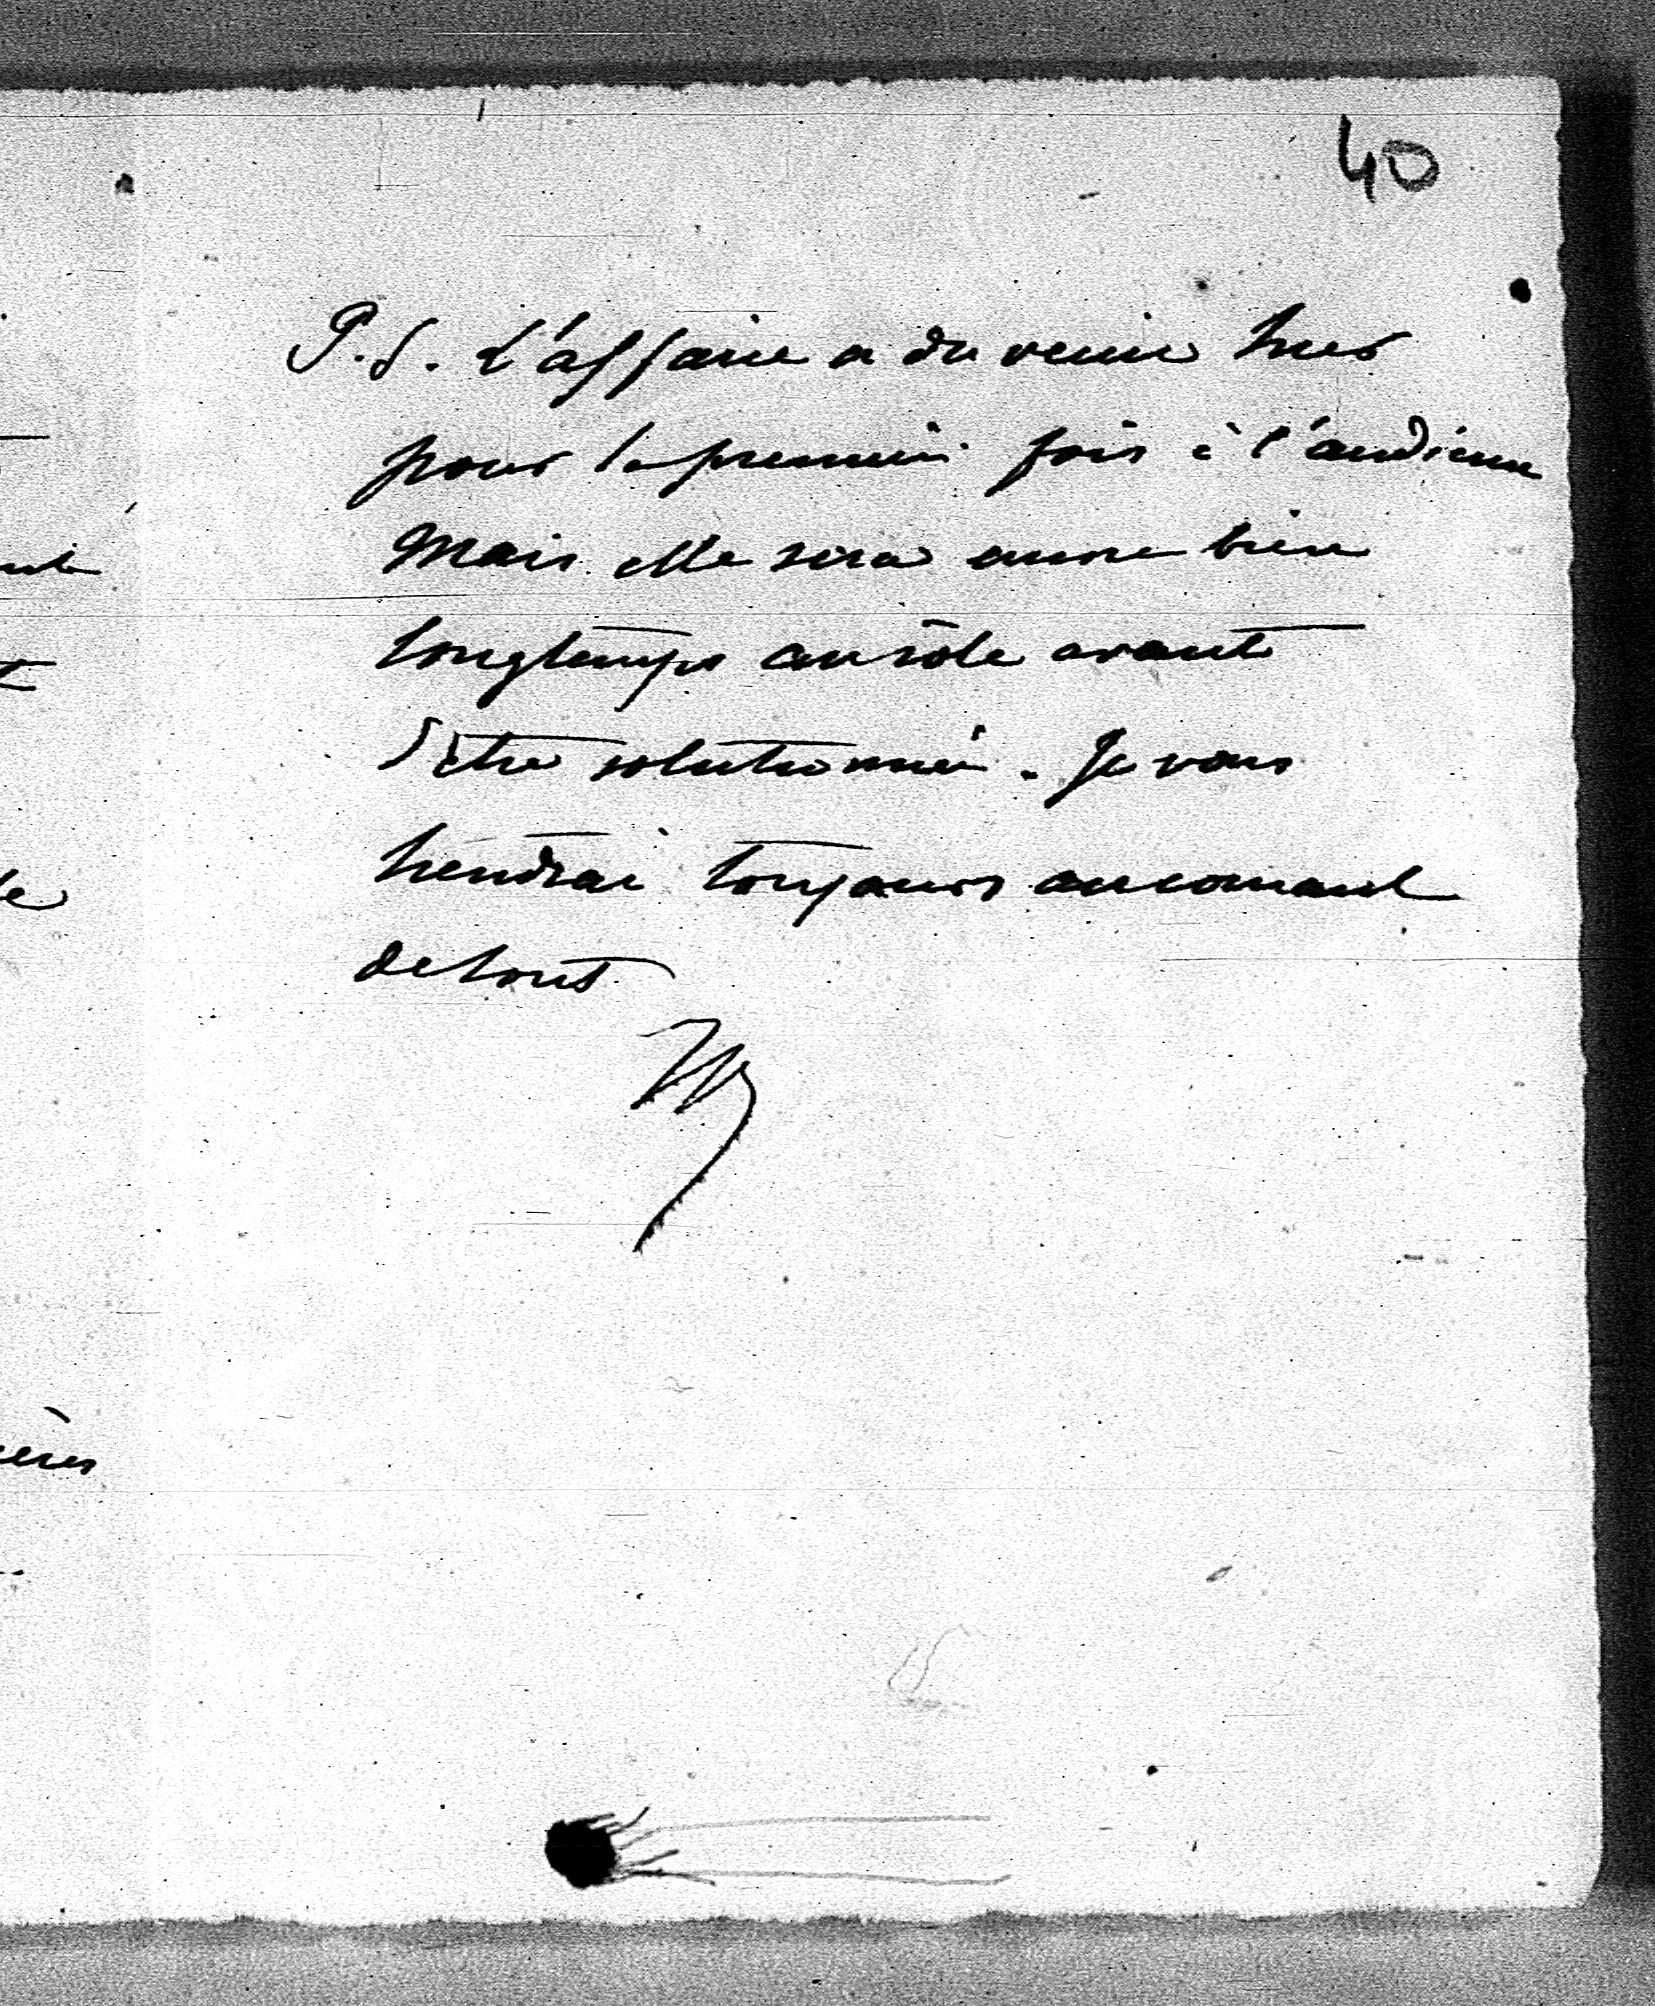 40
P.S. L'affaire a du venir hier
pour la première fois à l'audience
Mais elle sera encore bien
longtemps au rôle avant
d'être solutionnée. Je vous
tiendrai toujours au courant
de tout